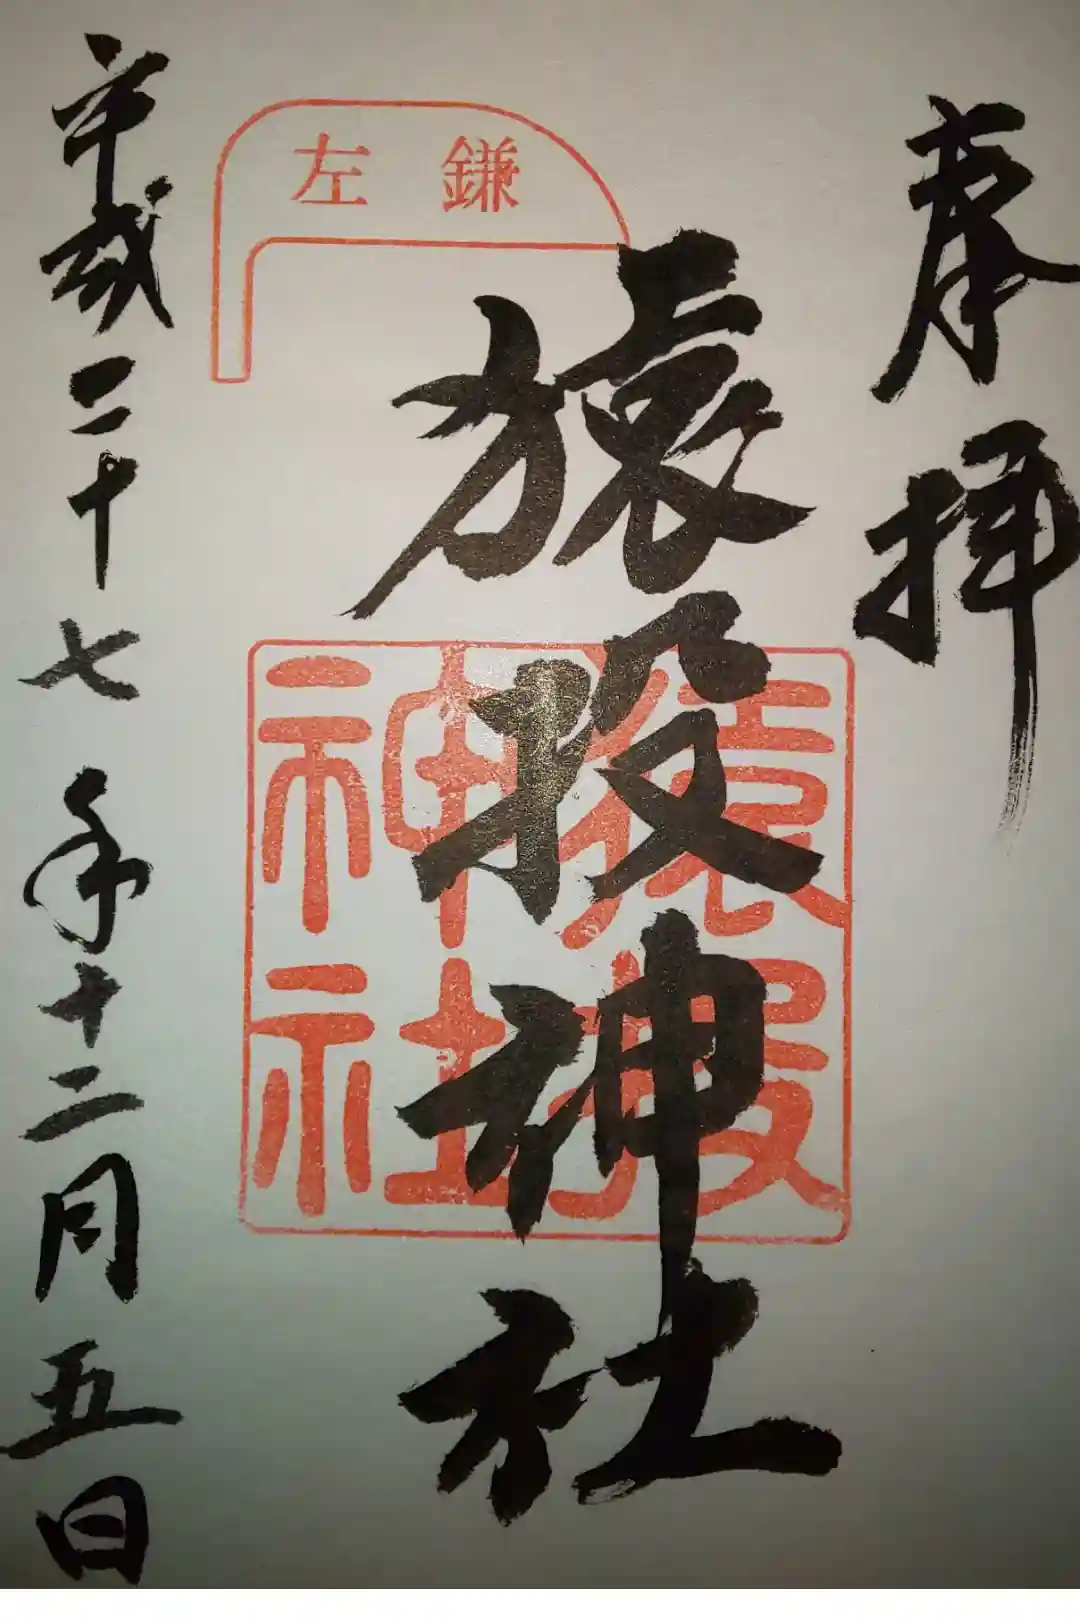 奉拝
左鎌
猿投神社
猿投
神社
平成二十七年十二月五日